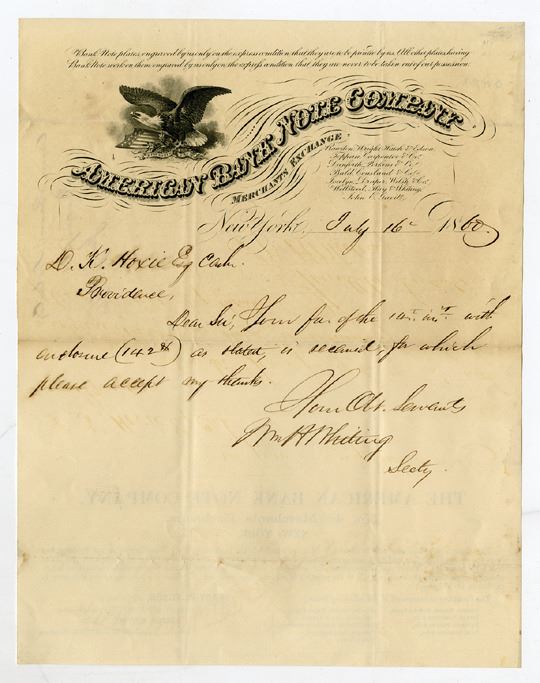 Bank Note plates, engraved by us only on the express condition that they are to be printed by us. All other plates having
Bank Note work on them, engraved by us only on the express condition that they are never to be taken out of our possession.
AMERICAN BANK NOTE COMPANY
MERCHANTS EXCHANGE
Rawdon, Wright, Hatch & Edson
Toppan, Carpenter & Co.
Danforth, Perkins & Co.
Bald, Cousland & Co.
Jocelyn, Draper, Welsh & Co.
Wellstood, Hay & Whiting
John E. Gavitt
New York, July 16th 1860
D. K. Hoxie Esq Cash.
Providence,
Dear Sir, Your fav. of the 14th inst with
enclosure (142) as stated, is received, for which
please accept my thanks.
Your Obt. Servants
Wm H Whiting
Secty.
THE AMERICAN BANK NOTE COMPANY,
Merchants Exchange
NEW YORK